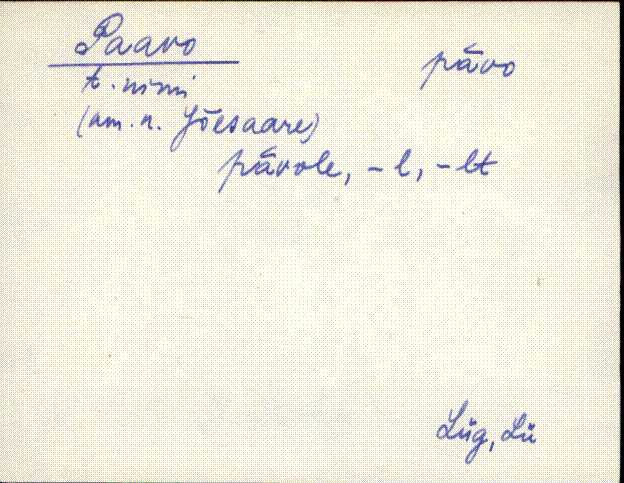 Paavo pāvo
t. nimi
(am. n. Jõesaare)
pāvole, -l, -lt
Lüg, Lü